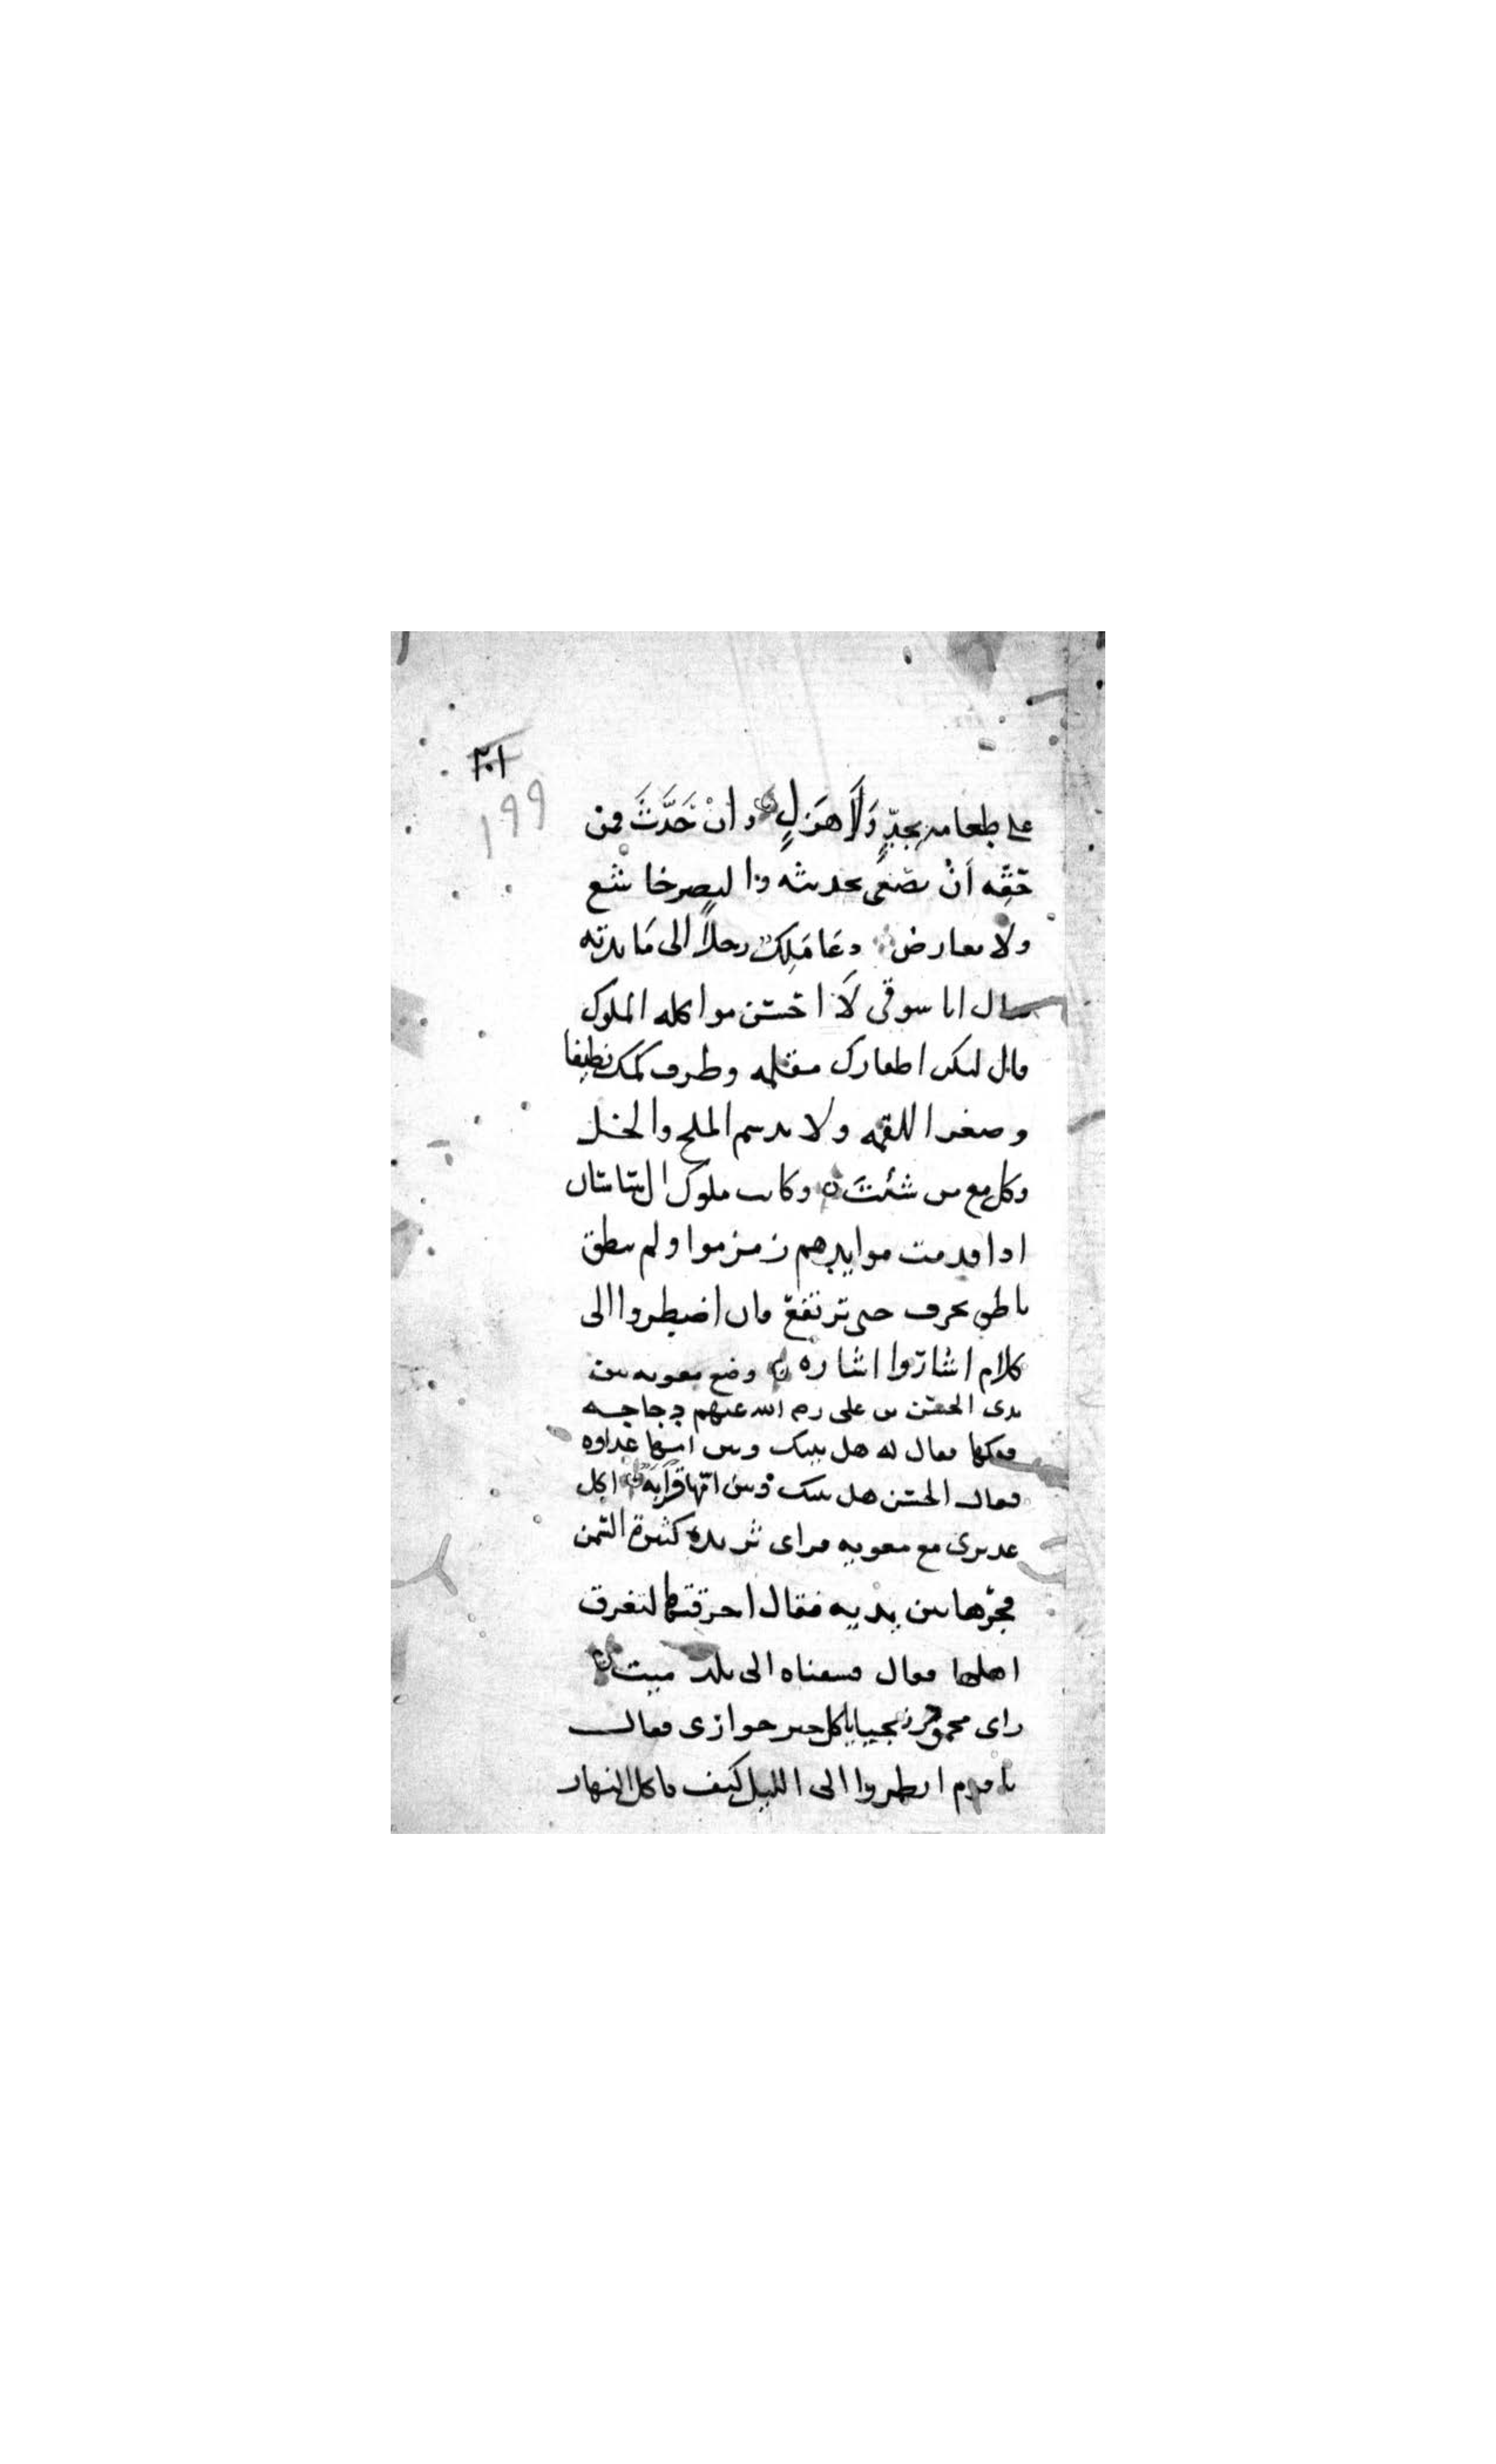 ٢٠١
١٩٩
على طعامه بجدٍّ وَلَا هَزلٍ وانْ حَدَّثَ فمن
حقِّه أنْ يصغى بحديثه والبصر خاشع
ولا يعارض دعَا مَلِك رجلاً الى مَايدته
فقال انا سوقى لَا احسن مواكله الملوك
قال لتكن اظفارك مقلمه وطرف كمك نظيفا
وصغر اللقمه ولا تدسم الملح والخل
وكل مع من شئتَ وكانت ملوك ال ساسان
اذا قدمت موايدهم زمزموا ولم ينطق
ناطق بحرف حتى ترتفع فان اضطروا الى
كلام اشاروا اشاره وضع معويه بين
يدى الحسن بن على رضى الله عنهم دجاجه
ففكها فقال له هل بينك وبين امها عداوه
فقال الحسن هل بينك وبين امّها قرابَه اكل
عذرى مع معويه فراى ثريده كثيرة السّمن
فجرّها بين يديه فقال اخرقتها لتغرق
اهلها فقال فسقناه الى بلد ميت
راى زنجيا ياكل خبز حوارى فقال
يا قوم انظروا الى الليل كيف ياكل النهار